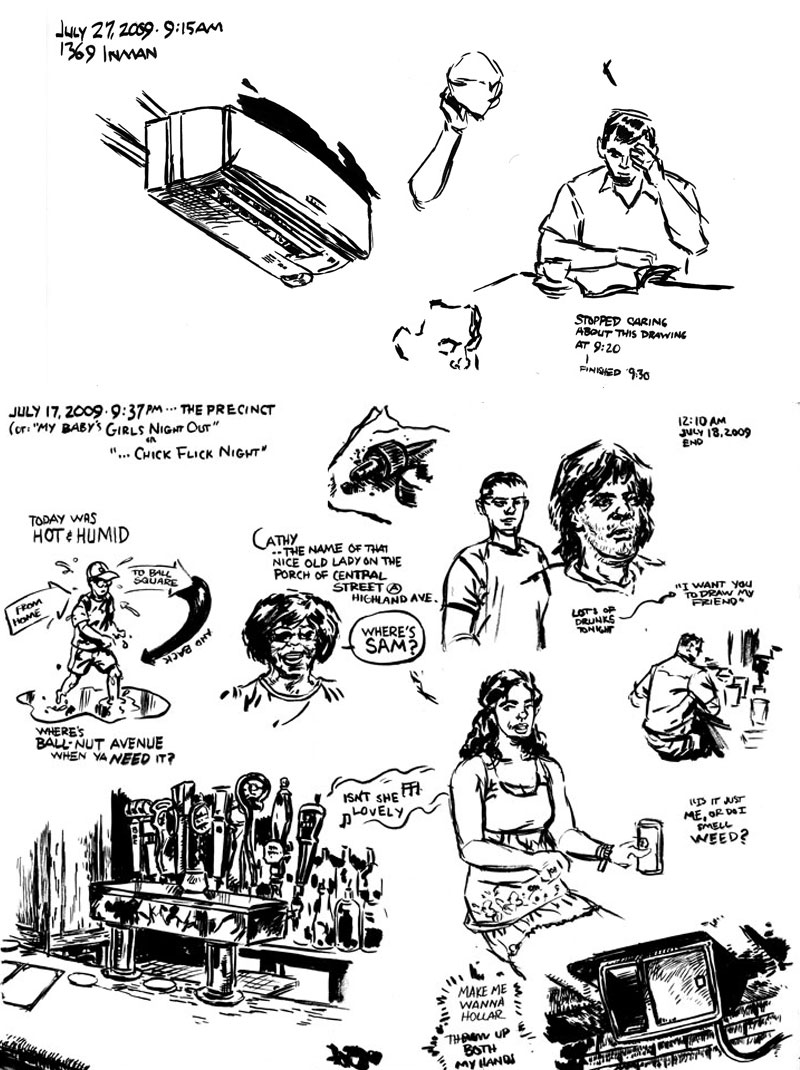 JULY 27, 2009 · 9:15AM
1369 INMAN
STOPPED CARING
ABOUT THIS DRAWING
AT 9:20
FINISHED 9:30
JULY 17, 2009 · 9:37PM ... THE PRECINCT
(or: "MY BABY'S GIRLS NIGHT OUT"
or
"... CHICK FLICK NIGHT"
12:10 AM
JULY 18, 2009
END
TODAY WAS
HOT & HUMID
FROM
HOME
TO BALL
SQUARE
AND BACK
WHERE'S
BALL-NUT AVENUE
WHEN YA NEED IT?
CATHY
... THE NAME OF THAT
NICE OLD LADY ON THE
PORCH OF CENTRAL
STREET @
HIGHLAND AVE.
WHERE'S
SAM?
LOTS OF
DRUNKS
TONIGHT
"I WANT YOU
TO DRAW MY
FRIEND"
ISN'T SHE
LOVELY
"IS IT JUST
ME, OR DO I
SMELL
WEED?
MAKE ME
WANNA
HOLLAR
THROW UP
BOTH
MY HANDS